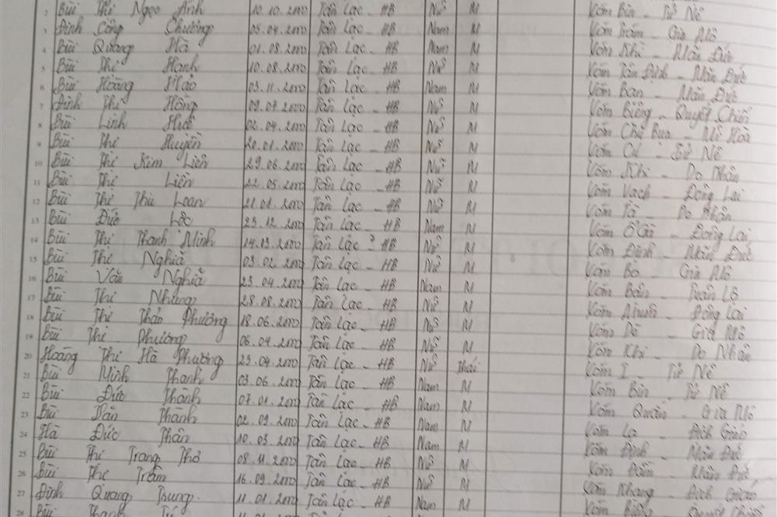 2 Bùi Thị Ngọc Ánh 10.10.2000 Tân Lạc - HB Nữ M Xóm Bin - Tử Nê
3 Đinh Công Chương 05.04.2000 Tân Lạc - HB Nam M Xóm Trăm - Gia Mô
4 Bùi Quang Hà 01.08.2000 Tân Lạc - HB Nam M Xóm Khi - Mãn Đức
5 Bùi Thị Hạnh 10.08.2000 Tân Lạc - HB Nữ M Xóm Tân Định - Mãn Đức
6 Bùi Hoàng Hảo 03.11.2000 Tân Lạc - HB Nam M Xóm Ban - Mãn Đức
7 Đinh Thị Hồng 09.07.2000 Tân Lạc - HB Nữ M Xóm Biêng - Quyết Chiến
8 Bùi Linh Huế 02.04.2000 Tân Lạc - HB Nữ M Xóm Chù Bụa - Mỹ Hoà
9 Bùi Thị Huyền 20.01.2000 Tân Lạc - HB Nữ M Xóm Cú - Tử Nê
10 Bùi Thị Kim Liên 29.06.2000 Tân Lạc - HB Nữ M Xóm Khi - Do Nhân
11 Bùi Thị Liên 22.05.2000 Tân Lạc - HB Nữ M Xóm Vạch - Đông Lai
12 Bùi Thị Thu Loan 21.01.2000 Tân Lạc - HB Nữ M Xóm Tà - Do Nhân
13 Bùi Đức Lộc 23.12.2000 Tân Lạc - HB Nam M Xóm - Đông Lai
14 Bùi Thị Thanh Minh 14.03.2000 Tân Lạc - HB Nữ M Xóm Định - Mãn Đức
15 Bùi Thị Nghĩa 03.02.2000 Tân Lạc - HB Nữ M Xóm Bo - Gia Mô
16 Bùi Văn Nghĩa 23.04.2000 Tân Lạc - HB Nam M Xóm Bán - Tuân Lộ
17 Bùi Thị Nhung 28.08.2000 Tân Lạc - HB Nữ M Xóm - Đông Lai
18 Bùi Thị Thảo Phương 18.06.2000 Tân Lạc - HB Nữ M Xóm Dè - Gia Mô
19 Bùi Thị Phương 06.01.2000 Tân Lạc - HB Nữ M Xóm Khi - Do Nhân
20 Hoàng Thị Hà Phương 23.04.2000 Tân Lạc - HB Nữ Thái Xóm I - Tử Nê
21 Bùi Minh Thanh 03.06.2000 Tân Lạc - HB Nam M Xóm Bin - Tử Nê
22 Bùi Đức Thành 07.01.2000 Tân Lạc - HB Nam M Xóm Quắn - Gia Mô
23 Bùi Văn Thành 02.09.2000 Tân Lạc - HB Nam M Xóm Lạ - Địch Giáo
24 Hà Đức Thân 10.03.2000 Tân Lạc - HB Nam M Xóm Định - Mãn Đức
25 Bùi Thị Trang Thơ 08.11.2000 Tân Lạc - HB Nữ M Xóm - Mãn Đức
26 Bùi Thị Trâm 16.09.2000 Tân Lạc - HB Nữ M Xóm Khang - Địch Giáo
27 Đinh Quang Trung 11.01.2000 Tân Lạc - HB Nam M Xóm Biêng - Quyết Chiến
28 Bùi Thanh